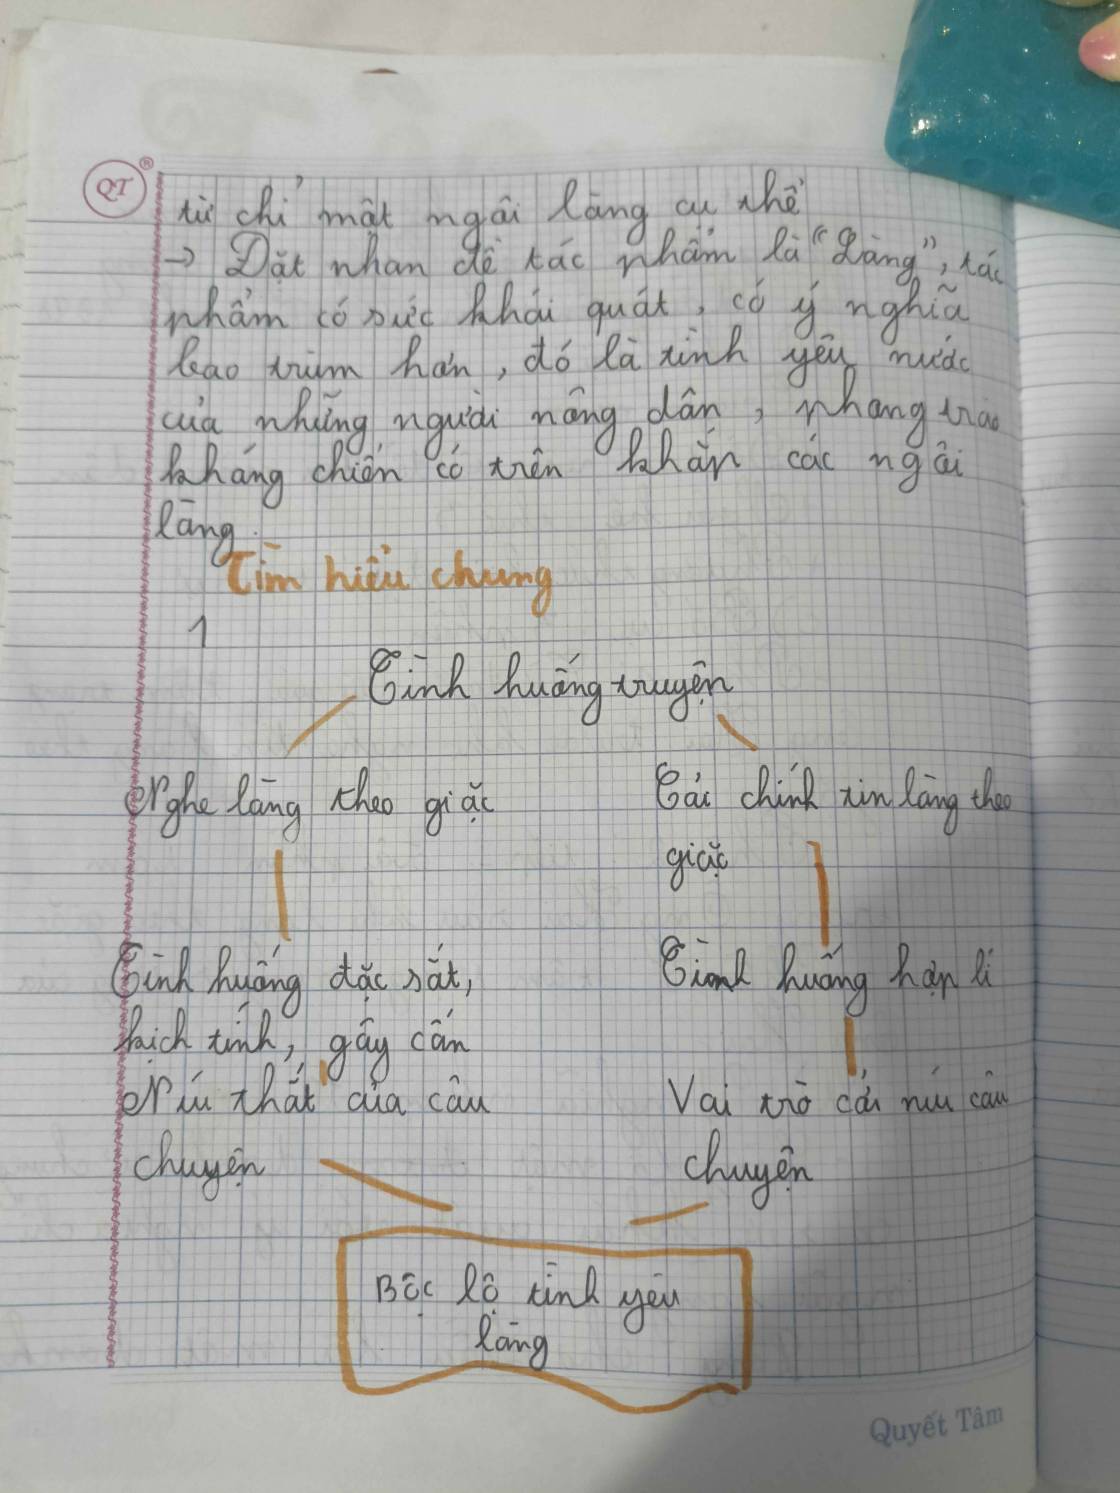 QT ®
từ chỉ một ngôi làng cụ thể
→ Đặt nhan đề tác phẩm là "Làng", tác
phẩm có sức khái quát, có ý nghĩa
bao trùm hơn, đó là tình yêu nước
của những người nông dân, phong trào
kháng chiến có trên khắp các ngôi
làng.
Tìm hiểu chung
1
Tình huống truyện
Nghe làng theo giặc
Cải chính tin làng theo
giặc
Tình huống đặc sắc,
kịch tính, gây cấn
Nút thắt của câu
chuyện
Tình huống hợp lí
Vai trò cởi nút câu
chuyện
Bộc lộ tình yêu
làng
Quyết Tâm